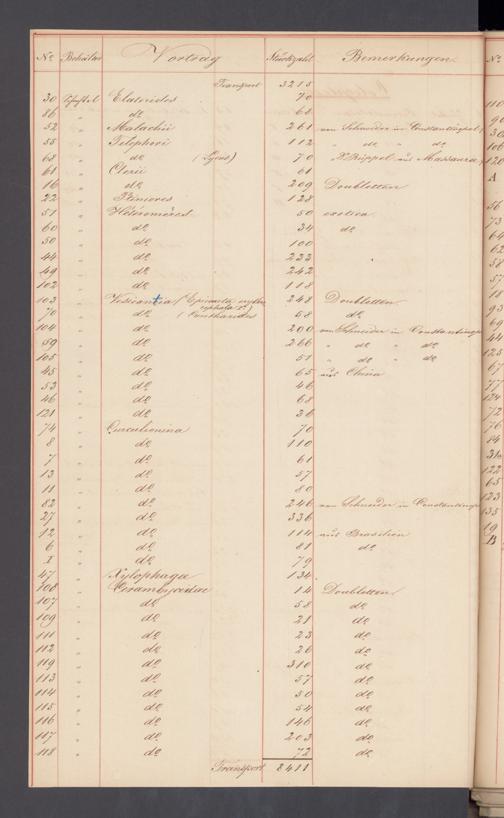 No Behälter Vortrag Stückzahl Bemerkungen
Transport 3215
30 Elaterides 70
86 " do 68
52 " Malachii 261 von Schneider in Constantinopel
55 " Telephori 112 " do " do
68 " do (Lycus) 70 Rüppel aus Massaua
61 " Clerii 61
16 " do 209 Doubletten
22 " 128
51 " Héteromères 50 exotica
60 " do 34 do
50 " do 100
44 " do 233
49 " do 242
102 " do 118
103 " Vesicantia (Epicauta 248 Doubletten
70 " do (Cantharides 58 do
104 " do 200 von Schneider in Constantinop
59 " do 266 " do " do
105 " do 51 " do " do
45 " do 65 aus China
53 " do 46
46 " do 68
121 " do 36
74 " Curculionina 70
8 " do 110
7 " do 61
13 " do 57
11 " do 80
82 " do 246 von Schneider in Constantinop
27 " do 336
12 " do 114 aus Brasilien
6 " do 81 do
I " do 79
47 " Xylophaga 134
108 " Cerambycidae 14 Doubletten
107 " do 58 do
109 " do 21 do
111 " do 23 do
112 " do 26 do
119 " do 310 do
113 " do 57 do
114 " do 50 do
115 " do 54 do
116 " do 146 do
117 " do 203 do
118 " do 72 do
Transport 8411